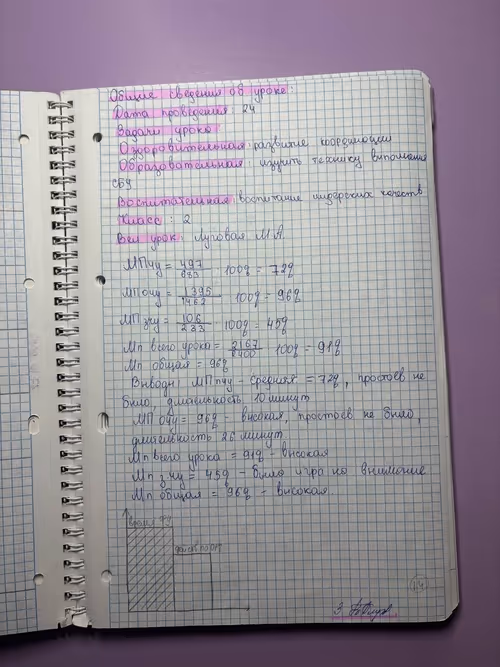 Общие сведения об уроке:
Дата проведения: 24
Задачи урока
Оздоровительная: развитие координации
Образовательная: изучить технику выполнения
СБУ
Воспитательная: воспитание лидерских качеств
Класс: 2
Вел урок: Луговая М.А.
МПчу = 497 / 100% = 72%
МПочу = 1395 / 1462 100% = 96%
МПзчу = 106 / 233 100% = 45%
Мп всего урока = 2167 / 100% = 91%
Мп общая = 96%
Выводы: МПпчу - средняя = 72%, простоев не
было, длительность 10 минут
МПочу = 96% - высокая, простоев не было,
длительность 26 минут
Мп всего урока = 91% - высокая
Мп зчу = 45% - было игра на внимание
Мп общая = 96% - высокая.
время ФУ